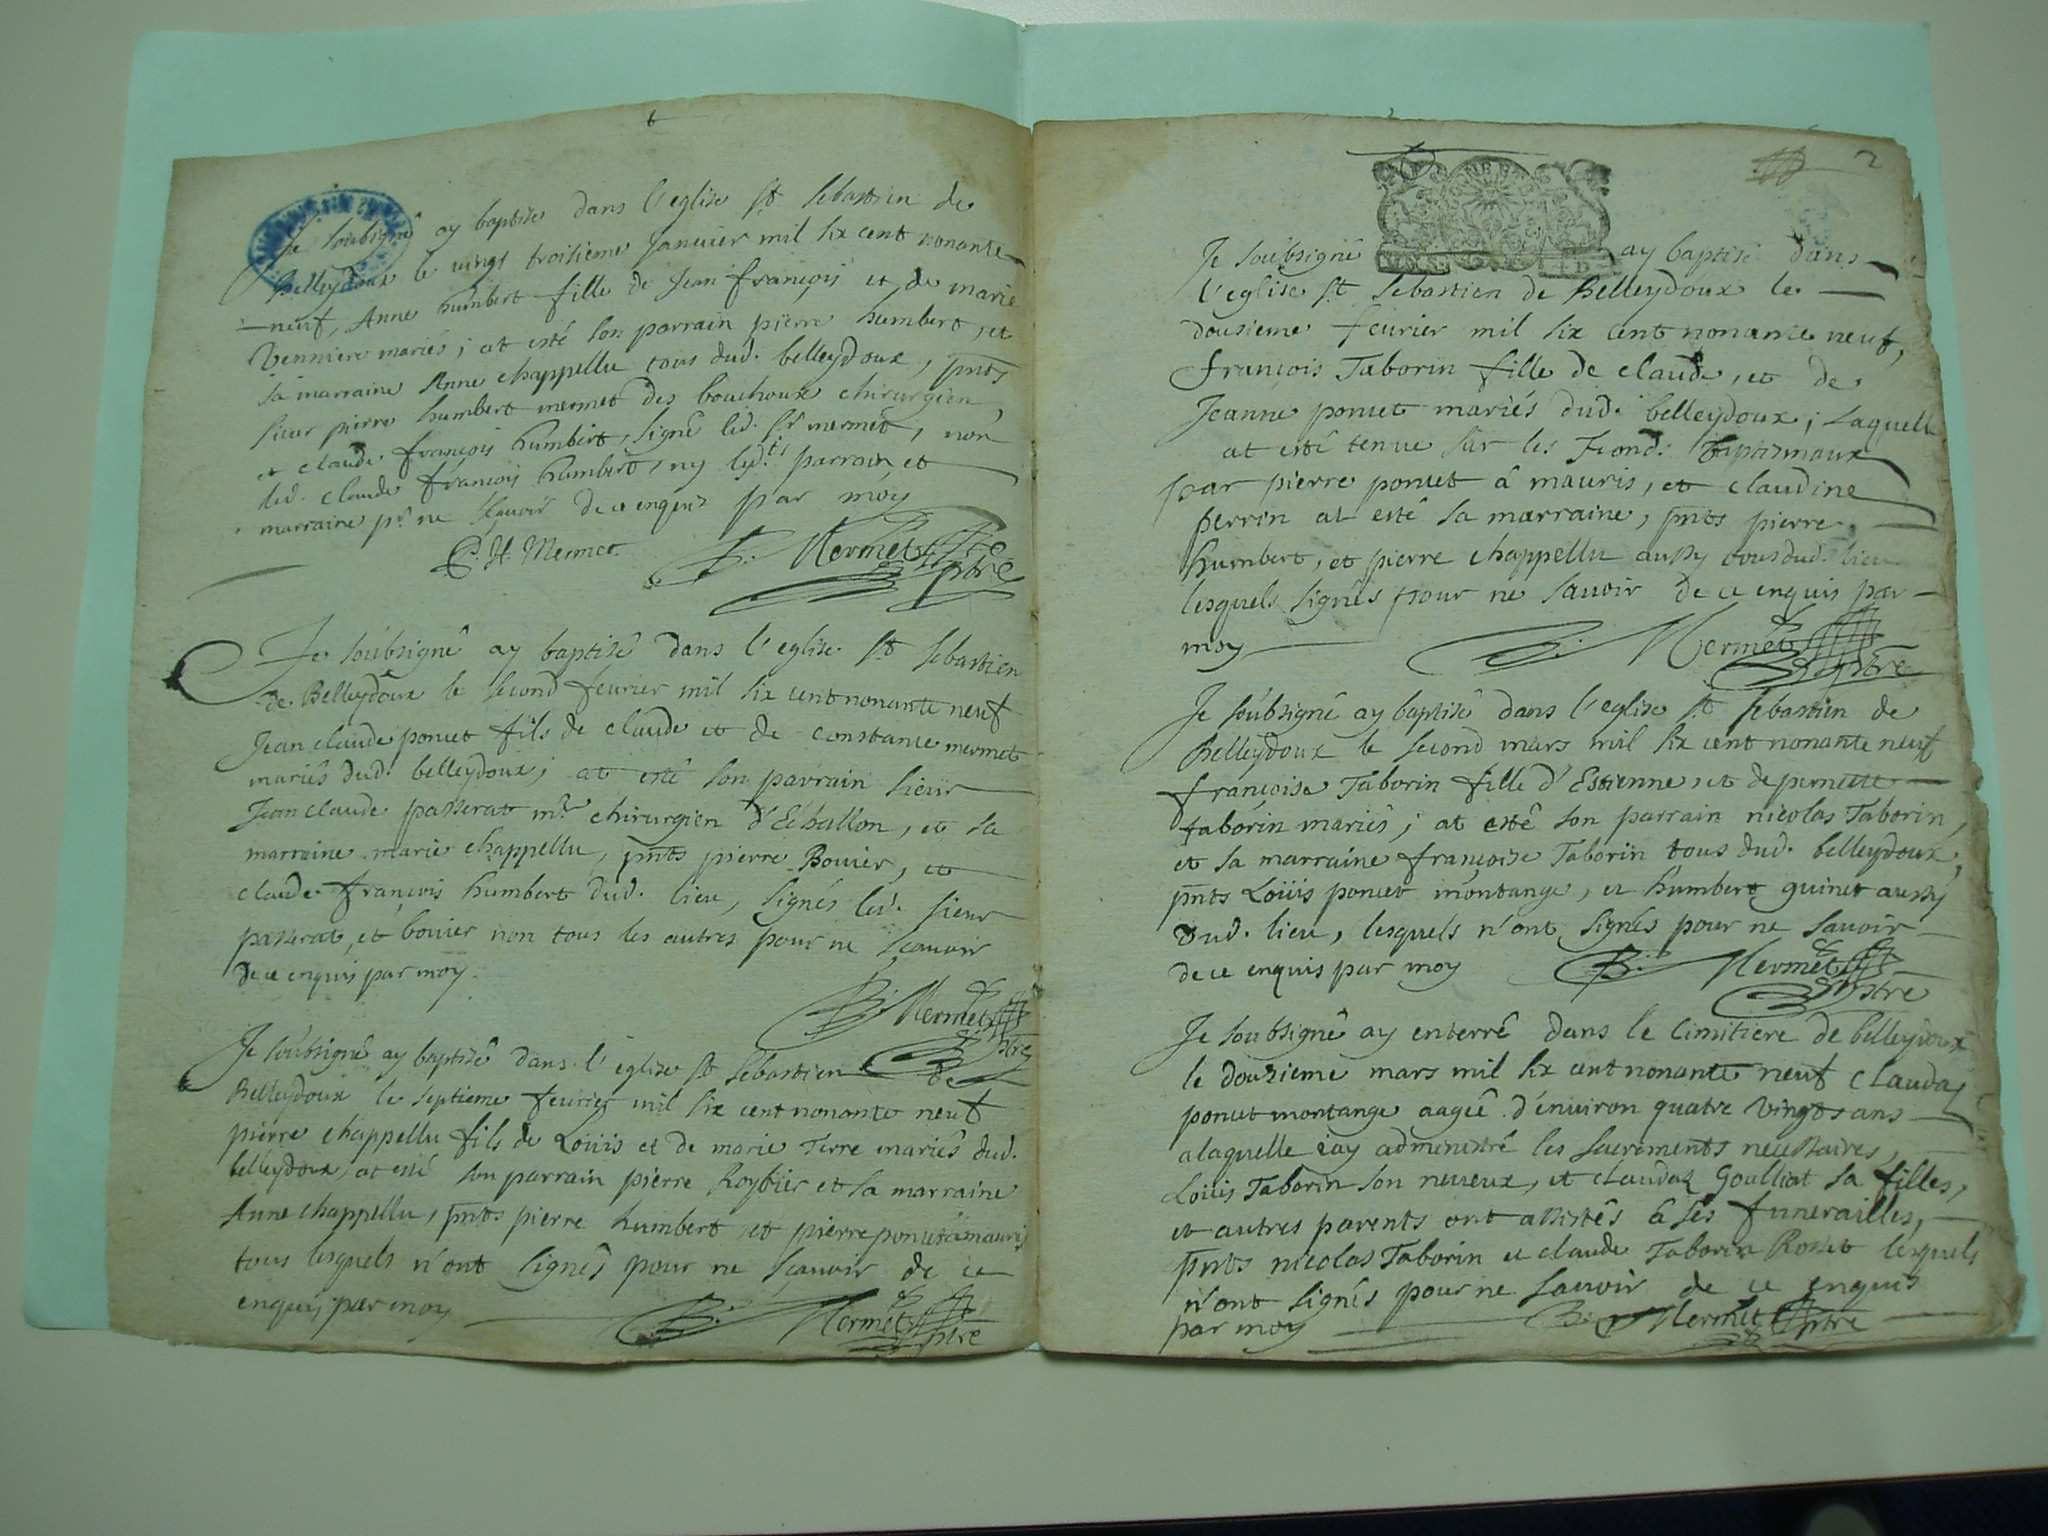 Je soubsigné ay baptisé dans l'eglise st sebastien de
Belleydoux le vingt troisieme janvier mil six cent nonante
neuf, Anne humbert fille de Jean françois et de marie
Venniere mariés; at esté son parrain pierre humbert, et
sa marraine Anne chappellu tous dud. belleydoux, pnts
sieur pierre humbert mermet des bouchoux chirurgien,
et claude françois humbert, signé led. sr mermet, non
led. claude françois humbert, ny lesd.ts parrain et
marraine pr ne sçavoir de ce enquis par moy
P. H. Mermet B. Mermet ptre
Je soubsigné ay baptisé dans l'eglise st sebastien
de Belleydoux le second fevrier mil six cent nonante neuf
Jean claude poncet fils de claude et de constance mermet
mariés dud. belleydoux; at esté son parrain sieur
Jean claude passerat mre chirurgien d'Echallon, et sa
marraine marie chappellu, pnts pierre Bouier, et
claude françois humbert dud. lieu, signés led. sieur
passerat, et bouier non tous les autres pour ne sçavoir
de ce enquis par moy.
B. Mermet ptre
Je soubsigné ay baptisé dans l'eglise st sebastien de
Belleydoux le septieme fevrier mil six cent nonante neuf
pierre chappellu fils de Loüis et de marie Terre mariés dud.
belleydoux, at esté son parrain pierre Roybier et sa marraine
Anne chappellu, pnts pierre humbert et pierre poncet à mauris
tous lesquels n'ont signés pour ne sçavoir de ce
enquis par moy B. Mermet ptre
2
Je soubsigné ay baptisé dans
l'eglise st sebastien de Belleydoux le
dousieme fevrier mil six cent nonante neuf,
françois Taborin fille de claude, et de
Jeanne poncet mariés dud. belleydoux; Laquelle
at esté tenue sur les fond. baptismaux
par pierre poncet â mauris, et claudine
perrin at esté sa marraine, pnts pierre
humbert, et pierre chappellu aussy tous dud. lieu
lesquels signés pour ne savoir de ce enquis par
moy B. Mermet ptre
Je soubsigné ay baptisé dans l'eglise st sebastien de
Belleydoux le second mars mil six cent nonante neuf
françoise Taborin fille d'Estienne, et de pernette
taborin mariés; at esté son parrain nicolas Taborin,
et sa marraine françoise Taborin tous dud. belleydoux,
pnts Loüis poncet montange, et humbert guinet aussy
dud. lieu, lesquels n'ont signés pour ne savoir
de ce enquis par moy B. Mermet ptre
Je soubsigné ay enterré dans le cimitiere de belleydoux
le douzieme mars mil six cent nonante neuf clauda
poncet montange aagée d'environ quatre vingts ans
a laquelle j'ay administré les sacrements necessaires,
Loüis Taborin son neveux, et claudaz Goulliat sa filles,
et autres parents ont assistés â ses funerailles,
pnts nicolas Taborin et claude Taborin Rosset lesquels
n'ont signés pour ne savoir de ce enquis
par moy B. Mermet ptre